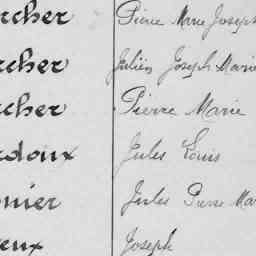 rcher Pierre Marie Joseph
rcher Julien Joseph Marie
rcher Pierre Marie
rdoux Jules Louis
nier Jules Pierre Mar
eux Joseph